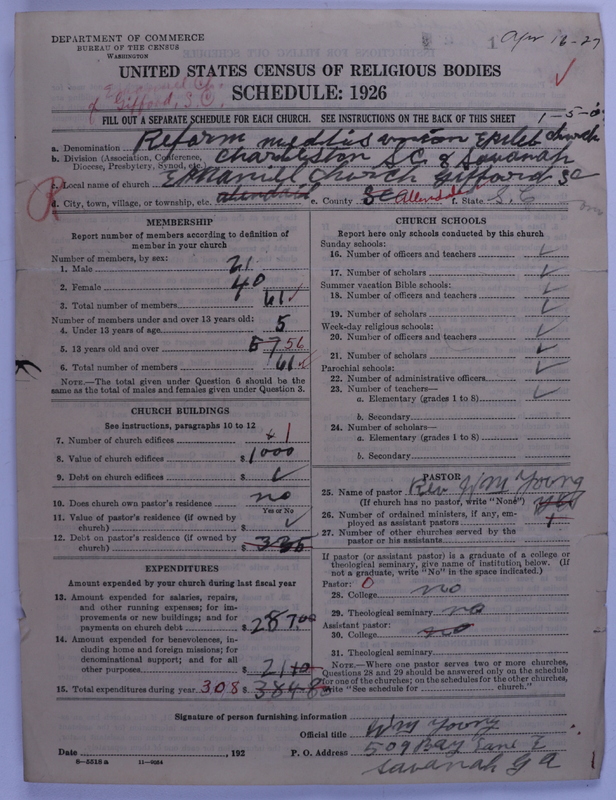 DEPARTMENT OF COMMERCE
BUREAU OF THE CENSUS
WASHINGTON
1 Apr 16-27
UNITED STATES CENSUS OF RELIGIOUS BODIES
SCHEDULE: 1926
Emanuel Ch.
of Gifford, S.C.
FILL OUT A SEPARATE SCHEDULE FOR EACH CHURCH. SEE INSTRUCTIONS ON THE BACK OF THIS SHEET
1-5-0
a. Denomination Reform church
b. Division (Association, Conference, Diocese, Presbytery, Synod, etc.) Charleston S.C. & Savanah
c. Local name of church Emaniel Church Gifford SC
d. City, town, village, or township, etc. e. County SC Allendale f. State S.C
MEMBERSHIP
Report number of members according to definition of member in your church
Number of members, by sex:
1. Male 21
2. Female 40
3. Total number of members 61
Number of members under and over 13 years old:
4. Under 13 years of age 5
5. 13 years old and over 57 56
6. Total number of members 61
NOTE.—The total given under Question 6 should be the same as the total of males and females given under Question 3.
CHURCH BUILDINGS
See instructions, paragraphs 10 to 12
7. Number of church edifices 1
8. Value of church edifices $ 1000
9. Debt on church edifices $
10. Does church own pastor's residence no
Yes or No
11. Value of pastor's residence (if owned by church) $
12. Debt on pastor's residence (if owned by church) $ 335
EXPENDITURES
Amount expended by your church during last fiscal year
13. Amount expended for salaries, repairs, and other running expenses; for improvements or new buildings; and for payments on church debt $ 287.00
14. Amount expended for benevolences, including home and foreign missions; for denominational support; and for all other purposes $ 21 40
15. Total expenditures during year 308 $
CHURCH SCHOOLS
Report here only schools conducted by this church
Sunday schools:
16. Number of officers and teachers
17. Number of scholars
Summer vacation Bible schools:
18. Number of officers and teachers
19. Number of scholars
Week-day religious schools:
20. Number of officers and teachers
21. Number of scholars
Parochial schools:
22. Number of administrative officers
23. Number of teachers—
a. Elementary (grades 1 to 8)
b. Secondary
24. Number of scholars—
a. Elementary (grades 1 to 8)
b. Secondary
PASTOR
25. Name of pastor Rev. Wm Young
(If church has no pastor, write "None") yes
26. Number of ordained ministers, if any, employed as assistant pastors 1
27. Number of other churches served by the pastor or his assistants
If pastor (or assistant pastor) is a graduate of a college or theological seminary, give name of institution below. (If not a graduate, write "No" in the space indicated.)
Pastor: 0
28. College no
29. Theological seminary no
Assistant pastor:
30. College no
31. Theological seminary
NOTE.—Where one pastor serves two or more churches, Questions 28 and 29 should be answered only on the schedule for one of the churches; on the schedules for the other churches, write "See schedule for church."
Signature of person furnishing information Wm Young
Official title
Date , 192 P. O. Address 509 Bay Lane E
Savanah Ga
8-5518 a 11-9054